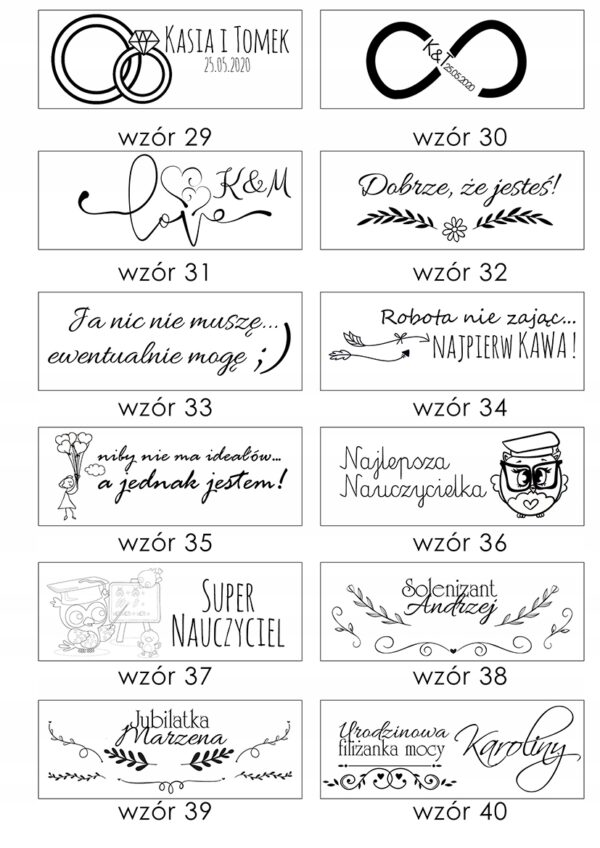 KASIA I TOMEK
25.05.2020
wzór 29
K&T 25.05.2020
wzór 30
K&M
love
wzór 31
Dobrze, że jesteś!
wzór 32
Ja nic nie muszę...
ewentualnie mogę ;)
wzór 33
Robota nie zając...
NAJPIERW KAWA!
wzór 34
niby nie ma ideałów...
a jednak jestem!
wzór 35
Najlepsza
Nauczycielka
wzór 36
SUPER
NAUCZYCIEL
wzór 37
Solenizant
Andrzej
wzór 38
Jubilatka
Marzena
wzór 39
Urodzinowa
filiżanka mocy
Karoliny
wzór 40